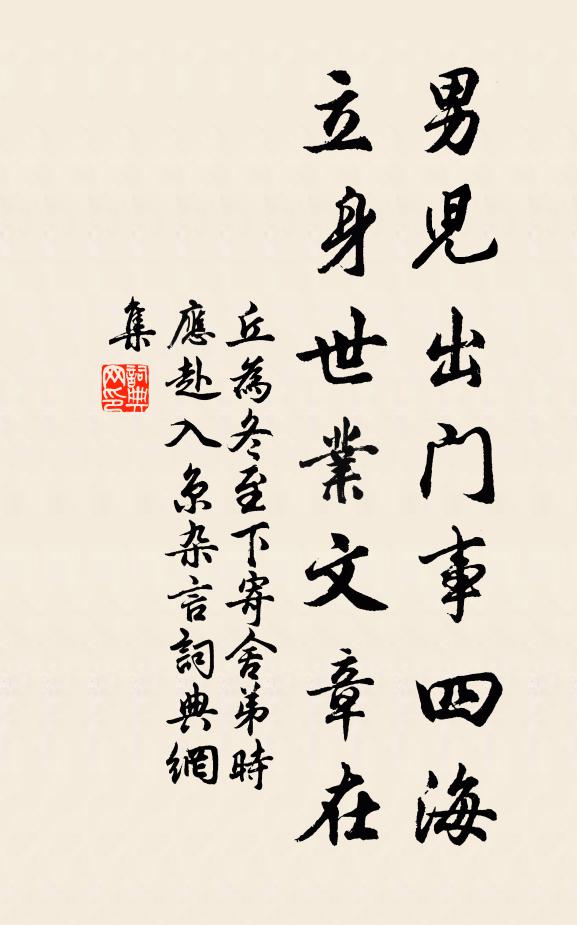 男児出門事四海
立身世業文章在
丘為冬至下寄舍弟時
應赴入京杂言詞典網
集
詞典
网印